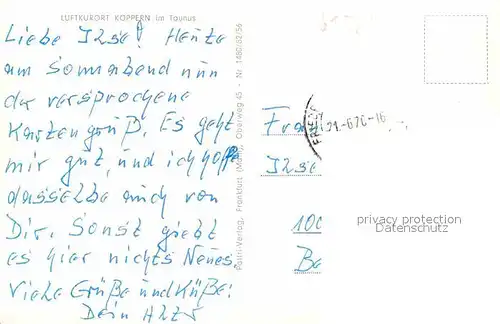 LUFTKURORT KÖPPERN im Taunus
Liebe Ilse! Heute
am Sonnabend nun
der versprochene
Kartengruß. Es geht
mir gut, und ich hoffe
dasselbe auch von
Dir. Sonst giebt
es hier nichts Neues.
Viele Grüße und Küße!
Dein
Verlag, Frankfurt (Main), Oberweg 45 - Nr. 1480/62/56
Frau
Ilse
privacy protection
Datenschutz
10
Be